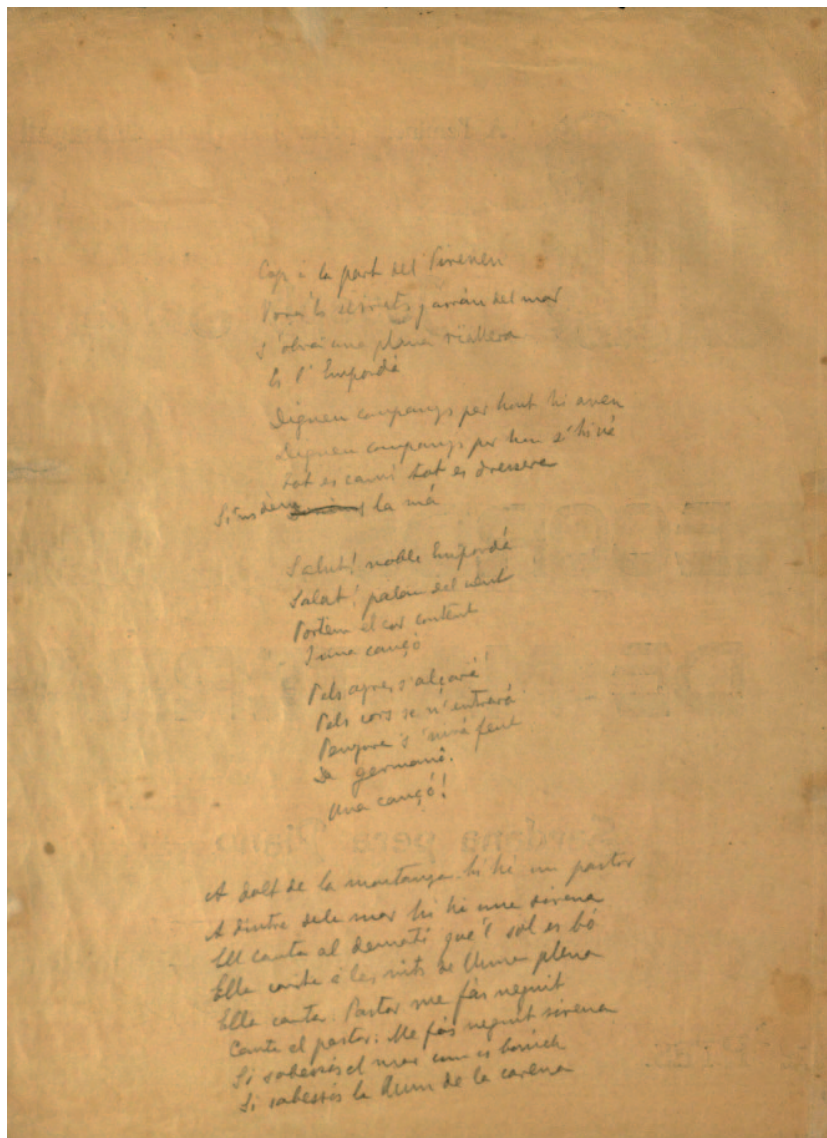 Cap a la part del Pirineu
s'obra una plana riallera
Es l'Empordà
Digueu companys per hont hi aneu
Digueu companys per hon s'hi vá
tot es camí tot es dressera
Si'ns dem la má
Salut! noble Empordá
Salut! palau del vent
Portem el cor content
I una cançó
Pels ayres s'alçará
Pels cors se n'entrará
Penyora s'nirá fent
De germanó.
Una cançó!
A dalt de la montanya hi há un pastor
A dintre dela mar hi há una sirena
Ell canta al dematí que'l sol es bó
Ella canta a les nits de lluna plena
Ella canta: Pastor me fas neguit
Canta el pastor: Me fas neguit sirena
Si sabessis el mar com es bonich
Si sabessis la llum de la carena
Sardana pera Piano